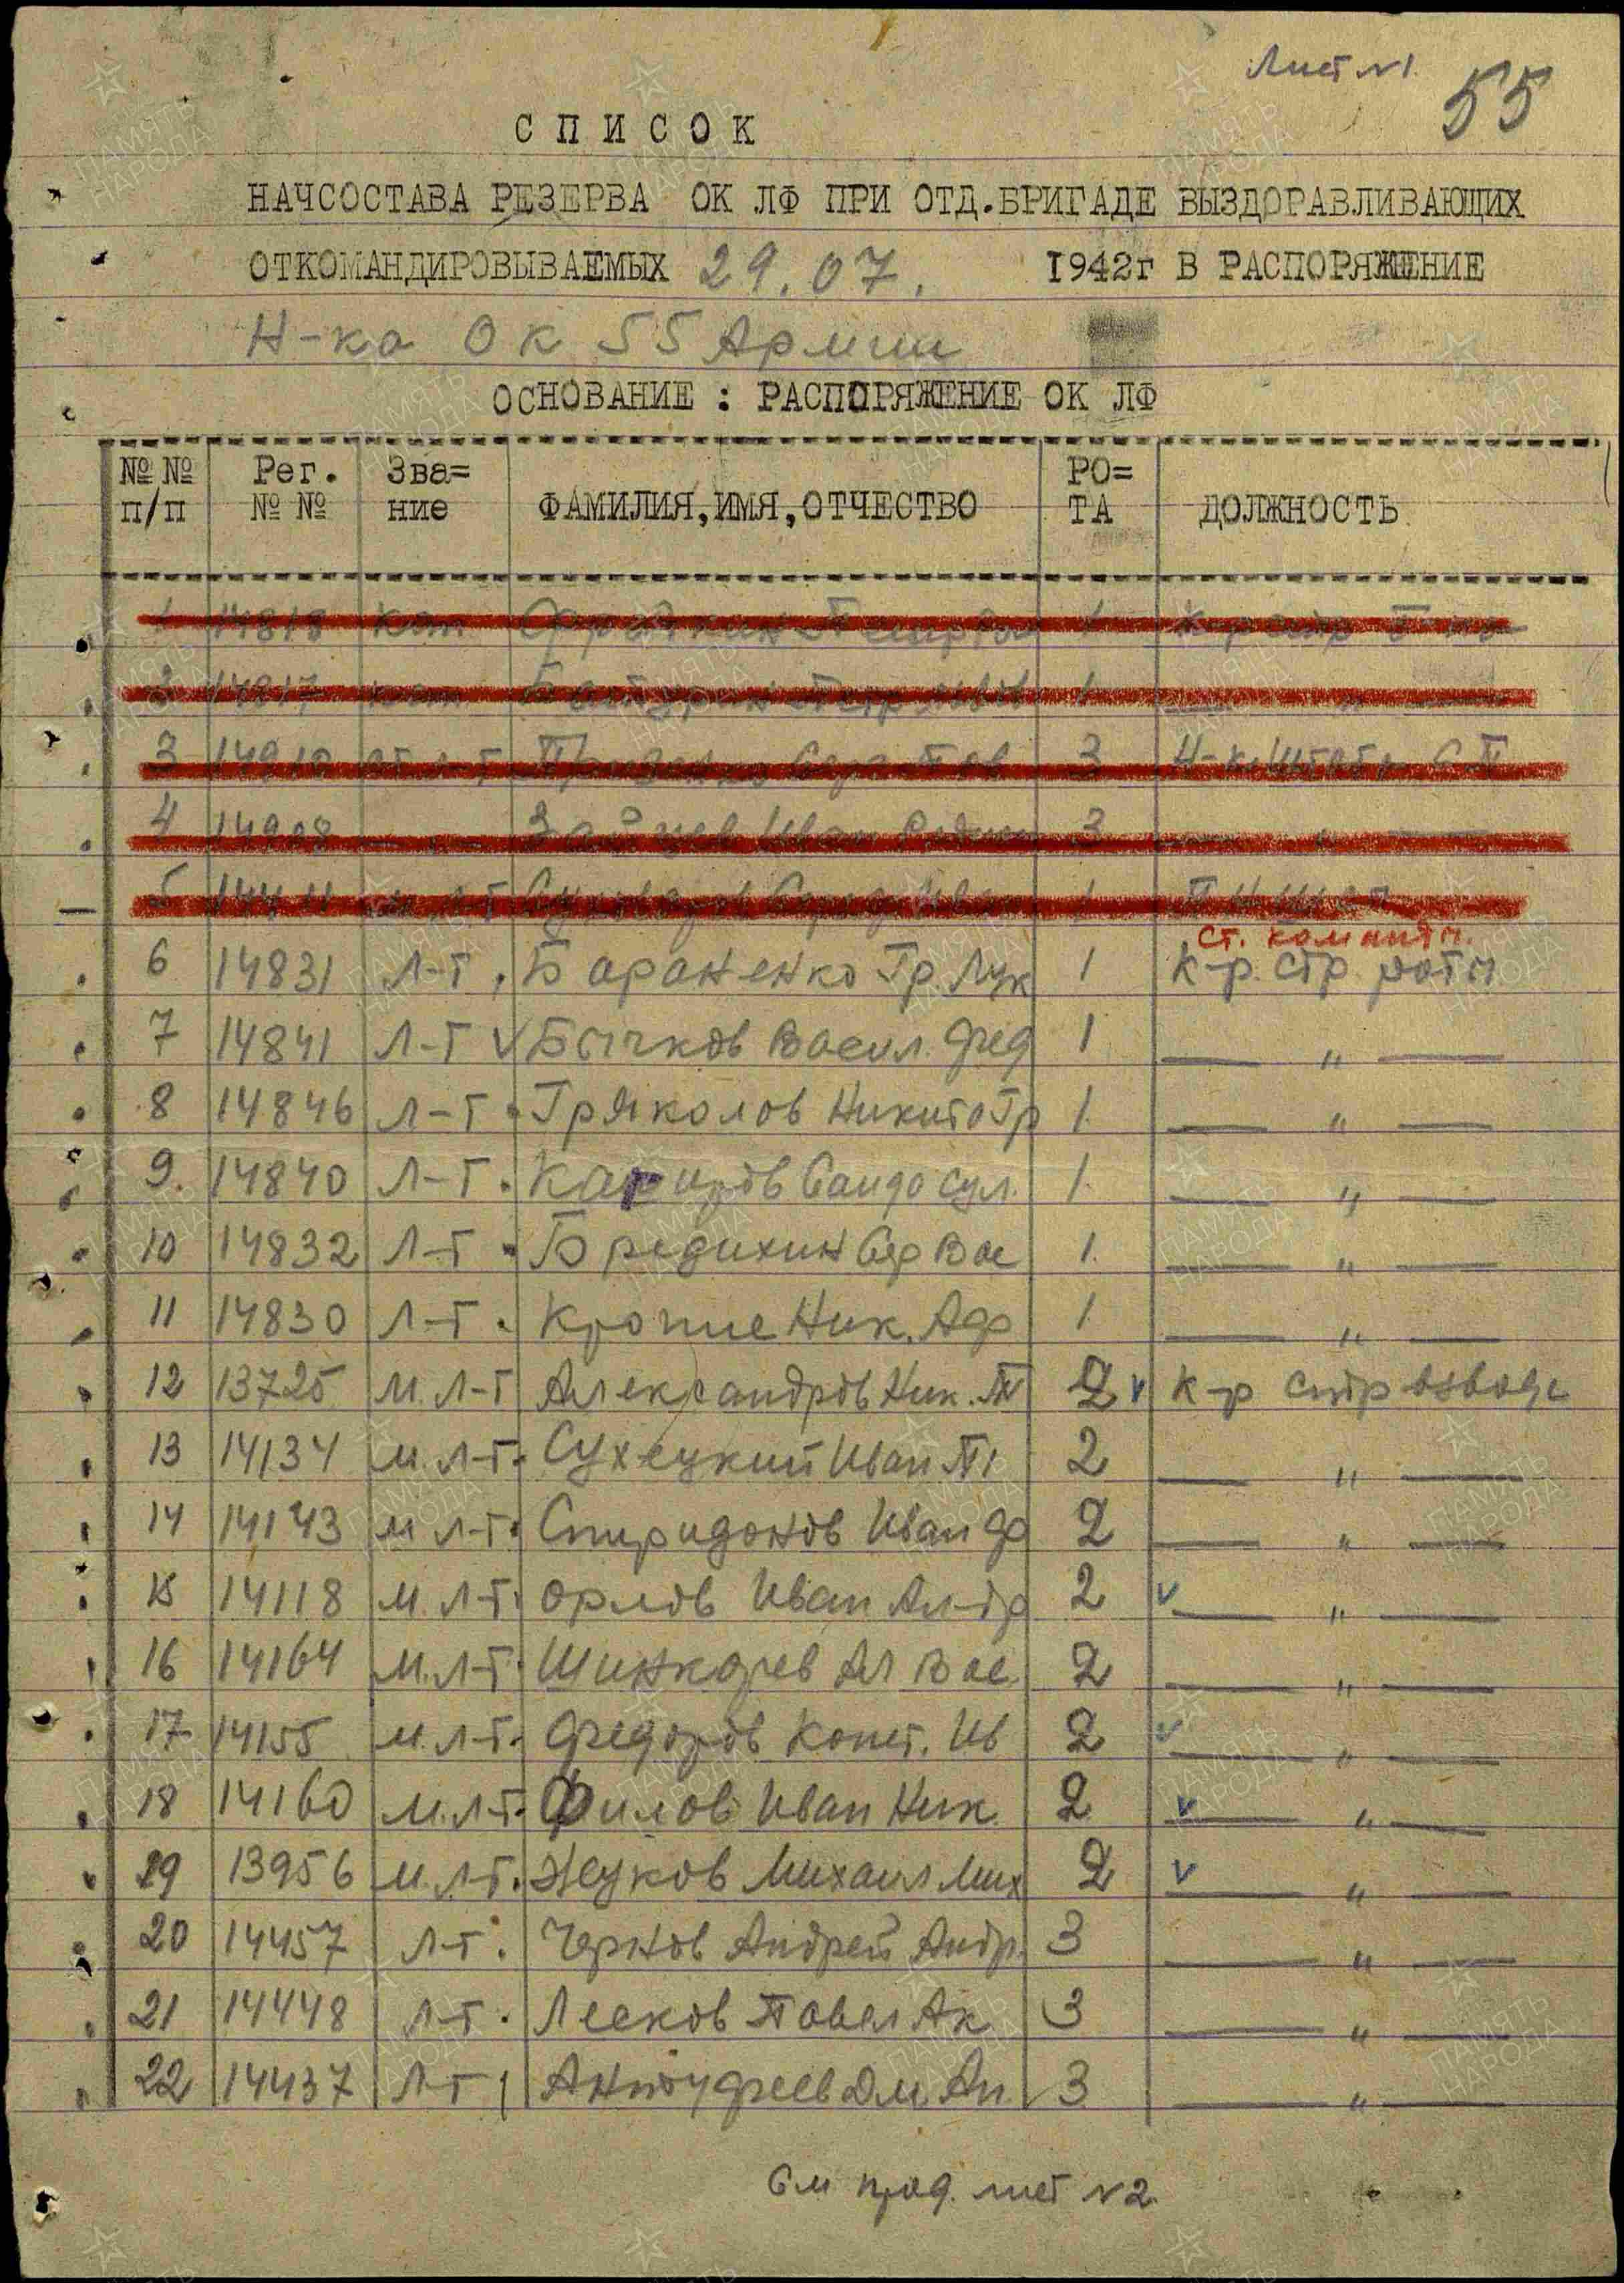 Лист N1.
55
СПИСОК
НАЧСОСТАВА РЕЗЕРВА ОК ЛФ ПРИ ОТД.БРИГАДЕ ВЫЗДОРАВЛИВАЮЩИХ
ОТКОМАНДИРОВЫВАЕМЫХ 29.07. 1942г В РАСПОРЯЖЕНИЕ
Н-ка ОК 55 Армии
ОСНОВАНИЕ : РАСПОРЯЖЕНИЕ ОК ЛФ
№№ п/п Рег. №№ Зва= ние ФАМИЛИЯ,ИМЯ,ОТЧЕСТВО РО= ТА ДОЛЖНОСТЬ
1 14818 кап 1 к-р стр
2 14817 кап 1 "
3 ст л-т 3 Н-к Штаба
4 14908 " Зайцев Иван 3 "
5 1
ст. команды.
6 14831 Л-т Бараненко Гр. Лук 1 к-р. стр роты
7 14841 Л-т v Бычков Васил. Фед 1 "
8 14846 Л-т Гряколов Никита Гр 1. "
9. 14840 Л-т. Сул. 1. "
10 14832 Л-т Бредихин Сер Вас 1. "
11 14830 Л-т. Ник. Аф 1 "
12 13725 М. Л-т Александров Ник. П 2 v к-р стр взвода
13 14134 М. Л-т. Сухецкий Иван П 2 "
14 14143 М Л-т. Спиридонов Иван Ф 2 "
15 14118 М. Л-т. Орлов Иван Ал-др 2 v "
16 14164 М. Л-т. Шинкарев Ал Вас 2 "
17 14155 М. Л-т. Федоров Конст. Ив 2 v "
18 14160 М. Л-т. Филов Иван Ник 2 v "
19 13956 М. Л-т. Жуков Михаил Мих 2 v "
20 14457 Л-т. Чернов Андрей Андр. 3 "
21 14448 Л-т. Лесков Павел Ак 3 "
22 14437 Л-т Антуфеев Дм. Ан. 3 "
См прод. лист N2.
ПАМЯТЬ НАРОДА